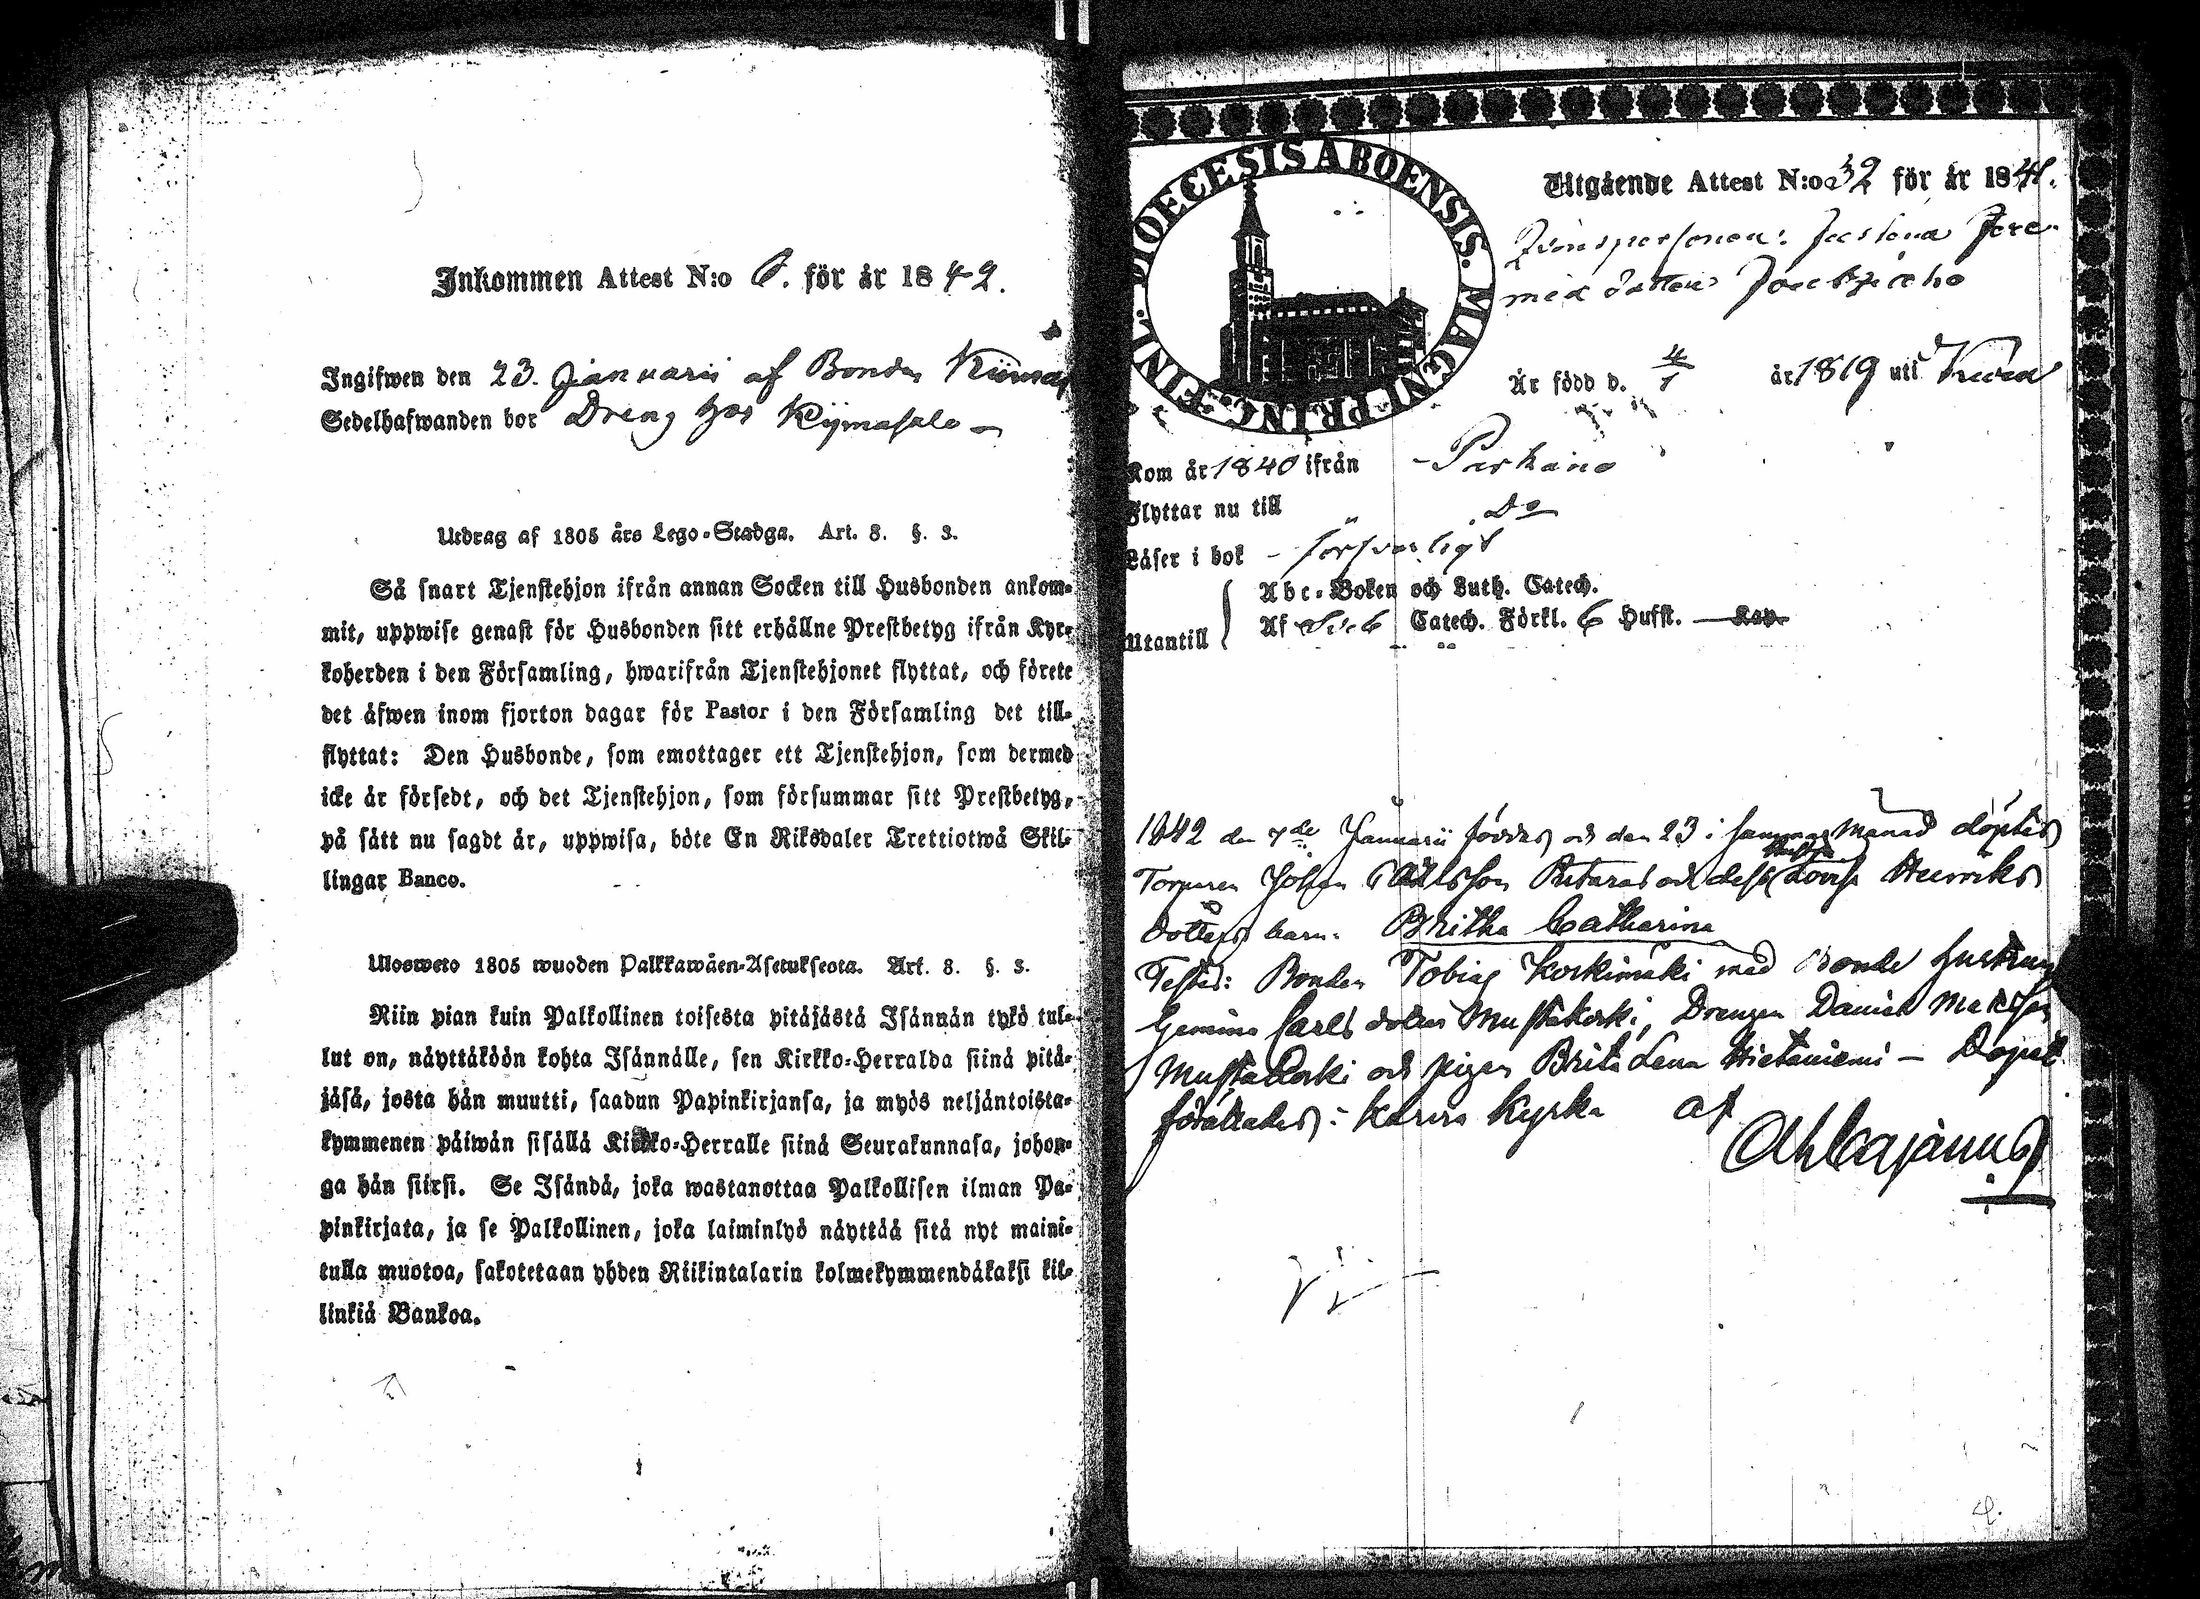 Inkommen Attest N:o 6. för år 1842.
Ingifwen den 23. Januarii af Bonden
Sedelhafwanden bor Dreng hos Kijmasalo
Utdrag af 1805 års Lego-Stadga. Art. 8. §. 3.
Så snart Tjenstehjon ifrån annan Socken till Husbonden ankom-
mit, uppwise genast för Husbonden sitt erhållne Prestbetyg ifrån Kyr-
koherden i den Församling, hwarifrån Tjenstehjonet flyttat, och förete
det äfwen inom fjorton dagar för Pastor i den Församling det till-
flyttat: Den Husbonde, som emottager ett Tjenstehjon, som dermed
icke är försedt, och det Tjenstehjon, som försummar sitt Prestbetyg,
på sätt nu sagdt är, uppwisa, böte En Riksdaler Trettiotwå Skil-
lingar Banco.
Ulosweto 1805 wuoden Palkkawäen-Asetuksesta. Art. 8. §. 3.
Niin pian kuin Palkollinen toisesta pitäjästä Isännän tykö tul-
lut on, näyttäköön kohta Isännälle, sen Kirkko-Herralda siinä pitä-
jäsä, josta hän muutti, saadun Papinkirjansa, ja myös neljäntoista-
kymmenen päiwän sisällä Kirkko-Herralle siinä Seurakunnasa, johon-
ga hän siirsi. Se Isändä, joka wastanottaa Palkollisen ilman Pa-
pinkirjata, ja se Palkollinen, joka laiminlyö näyttää sitä nyt maini-
tulla muotoa, sakotetaan yhden Riikintalarin kolmekymmendäkaksi kil-
linkiä Bankoa.
DIOECESIS ABOENSIS. MAGNI PRINC. FINL.
Utgående Attest N:o 32 för år 1841.
Qvinspersonen
med dottern
Är född d. 4/1 år 1819 uti
Kom år 1840 ifrån Parkano
Flyttar nu till " Do
Läser i bok försvarligt
Abc-Boken och Luth. Catech.
Utantill Af Sveb Catech. Förkl. 6 Hufst. Kap.
1842 den 7de Januarii föddes och den 23 i samma Månad döptes
Torparen Johan och dess hustru Lovisa Henriks
dotters barn: Britha Catharina
Testes: Bonden Tobias Korkimäki med Bonde hustrun
Carls dotter Mustakorki, Drengen Daniel Matsson
Mustakorki och pigan Brita Lena Hietaniemi — Dopet
förättades i Karvia Kyrka af
Cajanus